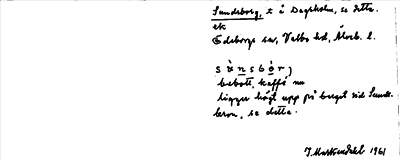 Sundsborg, t å Dagsholm, se detta.
ek
Edeborgs sn, Valbo hd, Älvsb. l.
sònsbòr,
bebott, kaffé nu
ligger högt upp på berget vid Sunds-
bron, se detta.
J. Markendahl 1961